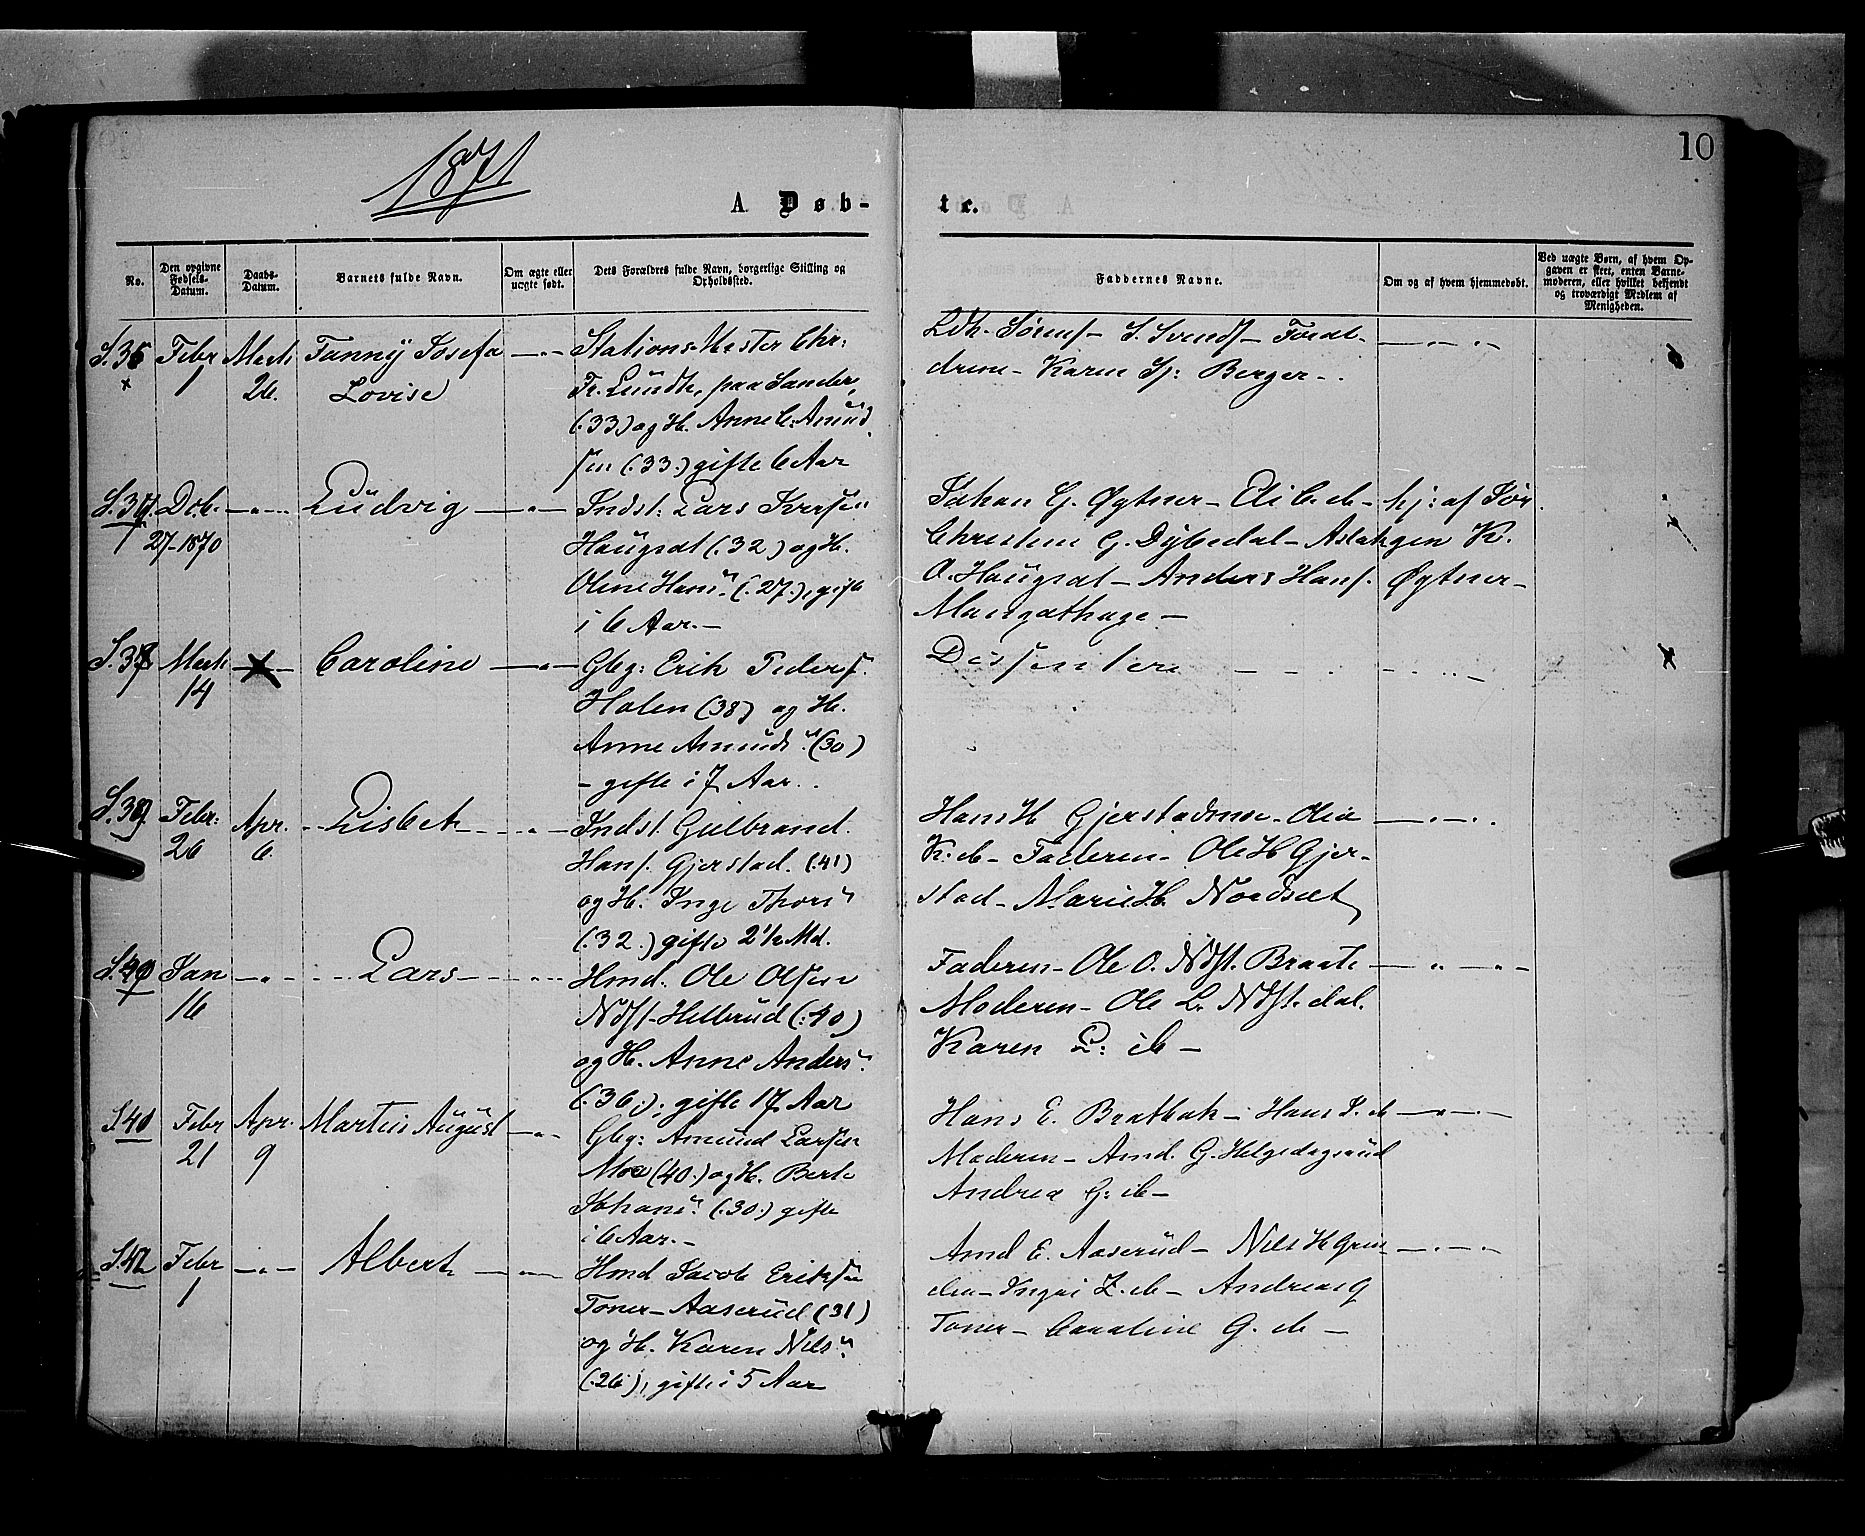 1871
10
A. Døb-
te.
No.
Den opgivne Fødsels-Datum.
Daabs-Datum.
Barnets fulde Navn.
Om ægte eller uægte født.
Dets Forældres fulde Navn, borgerlige Stilling og Opholdssted.
Faddernes Navne.
Om og af hvem hjemmedøbt.
Ved uægte Børn, af hvem Opgaven er skeet, enten Barnemoderen, eller hvilket bekjendt og troværdigt Medlem af Menigheden.
Febr 1
26.
Fanny Josefa
Lovise
Stations-Mester Chr:
Fr. Lundh, paa Sander,
(33) og H. Anne C. Amund
sen (33.) gifte 6 Aar
drene - Karen Sp: Berger -.
27-1870
Ludvig
Indst: Lars Iversen
Haugsæt (.32) og H.
Oline Hans" (.27.), gift
i 6 Aar. -
Johan G. Øgtner - Eli C. ib - hj: af Jor
Christine G. Dybedal - Aslak gen K.
O. Haugsæt - Anders Hans. Øgtner -
14
Caroline
Gbg: Erik Peders.
Holen (38) og H.
Anne Amunds" (30)
- gifte i 7 Aar..
Dissentere
Febr: 26
Apr. 6.
Lisbet
Indst. Gulbrand
Hans. Gjerstad. (.41)
og H. Inge Thors"
(.32.) gifte 2½ Md.
Hans H Gjerstadmoe - Olia
K: ib - Faderen - Ole H Gjer-
stad - Marie H. Nordsæt
Jan 16
Lars
Hmd. Ole Olsen
Ndst-Helbrud (:40)
og H. Anne Anders":
(.36.), gifte 17 Aar
Faderen - Ole O. Ndst. Braate
Moderen - Ole L. Ndst. dal.
Karen L: ib -
S.41
Febr 21
Apr. 9
Martin August
Gbg: Amund Larsen
Moe (40.) og H. Berte
Johans" (.30.) gifte
i 6 Aar. -
Hans E. Bratbak - Hans S. ib
Moderen - Amd. G. Helgedagsrud
Andrea G: ib -
S.42
Febr 1
Albert
Hmd Jacob Eriksen
Toner - Aaserud (31)
og H. Karen Nils":
(.26.), gifte i 5 Aar
Amd E. Aaserud - Nils H Gren
Toner - Caroline G. ib -